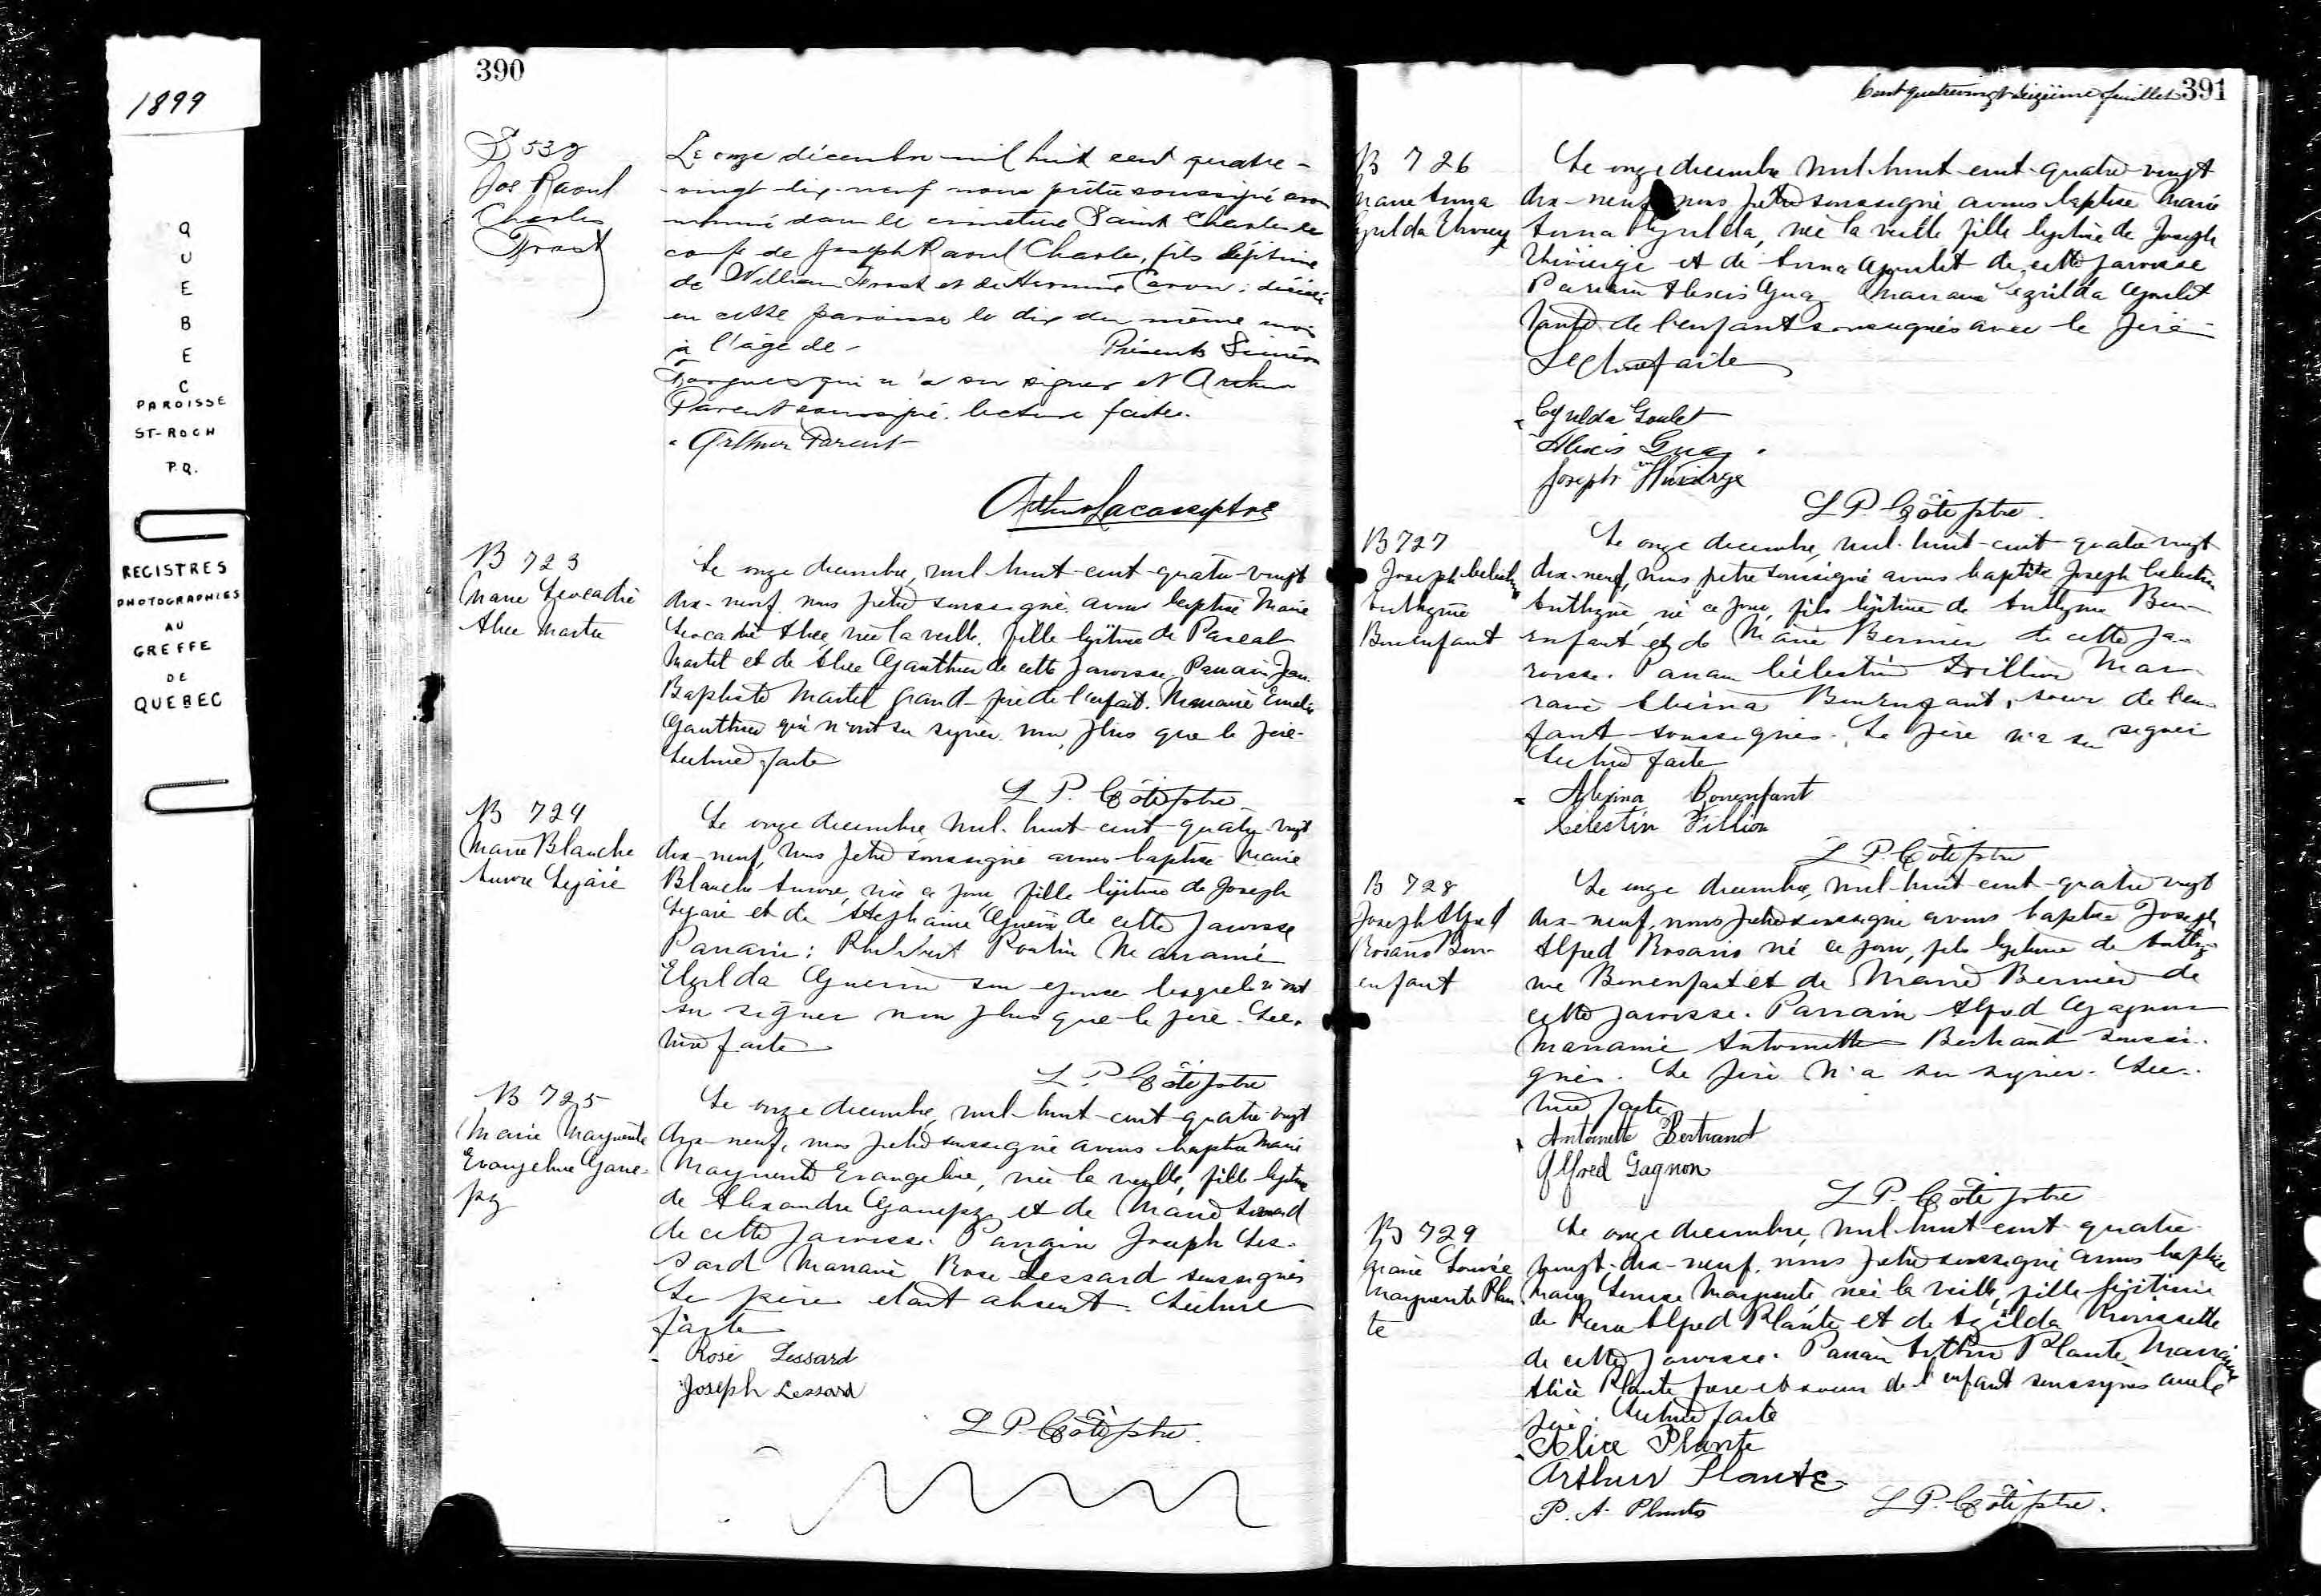 1899
QUEBEC
PAROISSE
ST-ROCH
P.Q.
REGISTRES
PHOTOGRAPHIES
AU
GREFFE
DE
QUEBEC
390
S 532
Jos Raoul
Charles
Frost
Le onze décembre mil huit cent quatre-
vingt dix-neuf nous prêtre soussigné avons
inhumé dans le cimetière Saint Charles le
corps de Joseph Raoul Charles, fils légitime
de William Frost et de Hermine Caron; décédé
en cette paroisse le dix du même mois
à l'âge de - Présents Siméon
qui n'a su signer et Arthur
Parent soussigné. lecture faite.
Arthur Parent
Arthur Lacasse ptre
B 723
Marie Leocadie
Alice Martel
Le onze decembre, mil-huit-cent-quatre-vingt
dix-neuf, nous prêtre soussigné avons baptisé Marie
Leocadie Alice, née la veille, fille légitime de Pascal
Martel et de Alice Gauthier de cette paroisse. Parrain Jean
Baptiste Martel grand-père de l'enfant. Marraine
Gauthier qui n'ont su signer non plus que le père.
Lecture faite
L P. Côté ptre
B 724
Marie Blanche
Aurore Légaré
Le onze decembre mil-huit-cent-quatre-vingt
dix-neuf, nous prêtre soussigné avons baptisé Marie
Blanche Aurore, née ce jour, fille légitime de Joseph
Légaré et de Stephanie Guerin de cette paroisse
Parrain: Poulin Marraine
Guerin son epouse lesquels n'ont
su signer non plus que le père. Lec-
ture faite
L. P. Côté ptre
B 725
Marie Marguerite
Evangeline Garie-
py
Le onze decembre, mil-huit-cent-quatre-vingt
dix-neuf, nous prêtre soussigné avons baptisé Marie
Marguerite Evangeline, née la veille, fille légitime
de Alexandre Gariepy et de Marie
de cette paroisse. Parrain Joseph Les-
sard Marraine Rose Lessard soussignés
Le père etant absent. Lecture
faite
Rose Lessard
Joseph Lessard
L P. Côté ptre.
Cent quatrevingt seizième feuillet 391
B 726
Marie Anna
Thivierge
Le onze decembre mil-huit-cent-quatre-vingt
dix-neuf nous prêtre soussigné avons baptisé Marie
Anna, née la veille fille légitime de Joseph
Thivierge et de Anna Goulet de cette paroisse
Parrain Alexis Guay Marraine Goulet
tante de l'enfant soussignés avec le père
Lecture faite
Goulet
Alexis Guay
Joseph Thivierge
L P. Côté ptre.
B 727
Joseph Celestin
Anthyme
Bonenfant
Le onze decembre, mil-huit-cent quatre vingt
dix-neuf, nous prêtre soussigné avons baptisé Joseph Celestin
Anthyme, né ce jour, fils légitime de Anthyme Bon-
enfant et de Marie Bernier de cette pa-
roisse. Parrain Célestin Fillion Mar-
raine Alexina Bonenfant, sœur de l'en-
fant soussignés. Le père n'a su signer
Lecture faite
Alexina Bonenfant
Célestin Fillion
L P. Côté ptre
B 728
Joseph Alfred
Rosario Bon-
enfant
Le onze decembre, mil-huit-cent-quatre vingt
dix-neuf, nous prêtre soussigné avons baptisé Joseph
Alfred Rosario né ce jour, fils légitime de Anthy-
me Bonenfant et de Marie Bernier de
cette paroisse. Parrain Alfred Gagnon
Marraine Antoinette Bertrand soussi-
gnés. Le père n'a su signer. Lec-
ture faite
Antoinette Bertrand
Alfred Gagnon
L P. Côté ptre
B 729
Marie Louise
Marguerite Plan-
te
Le onze decembre, mil-huit-cent-quatre-
vingt-dix-neuf, nous prêtre soussigné avons baptisé
Marie Louise Marguerite née la veille, fille légitime
de Pierre Alfred Plante et de
de cette paroisse. Parrain Arthur Plante Marraine
Alice Plante frère et sœur de l'enfant soussignés avec le
père. Lecture faite
Alice Plante
Arthur Plante
P. A. Plante
L P. Côté ptre.